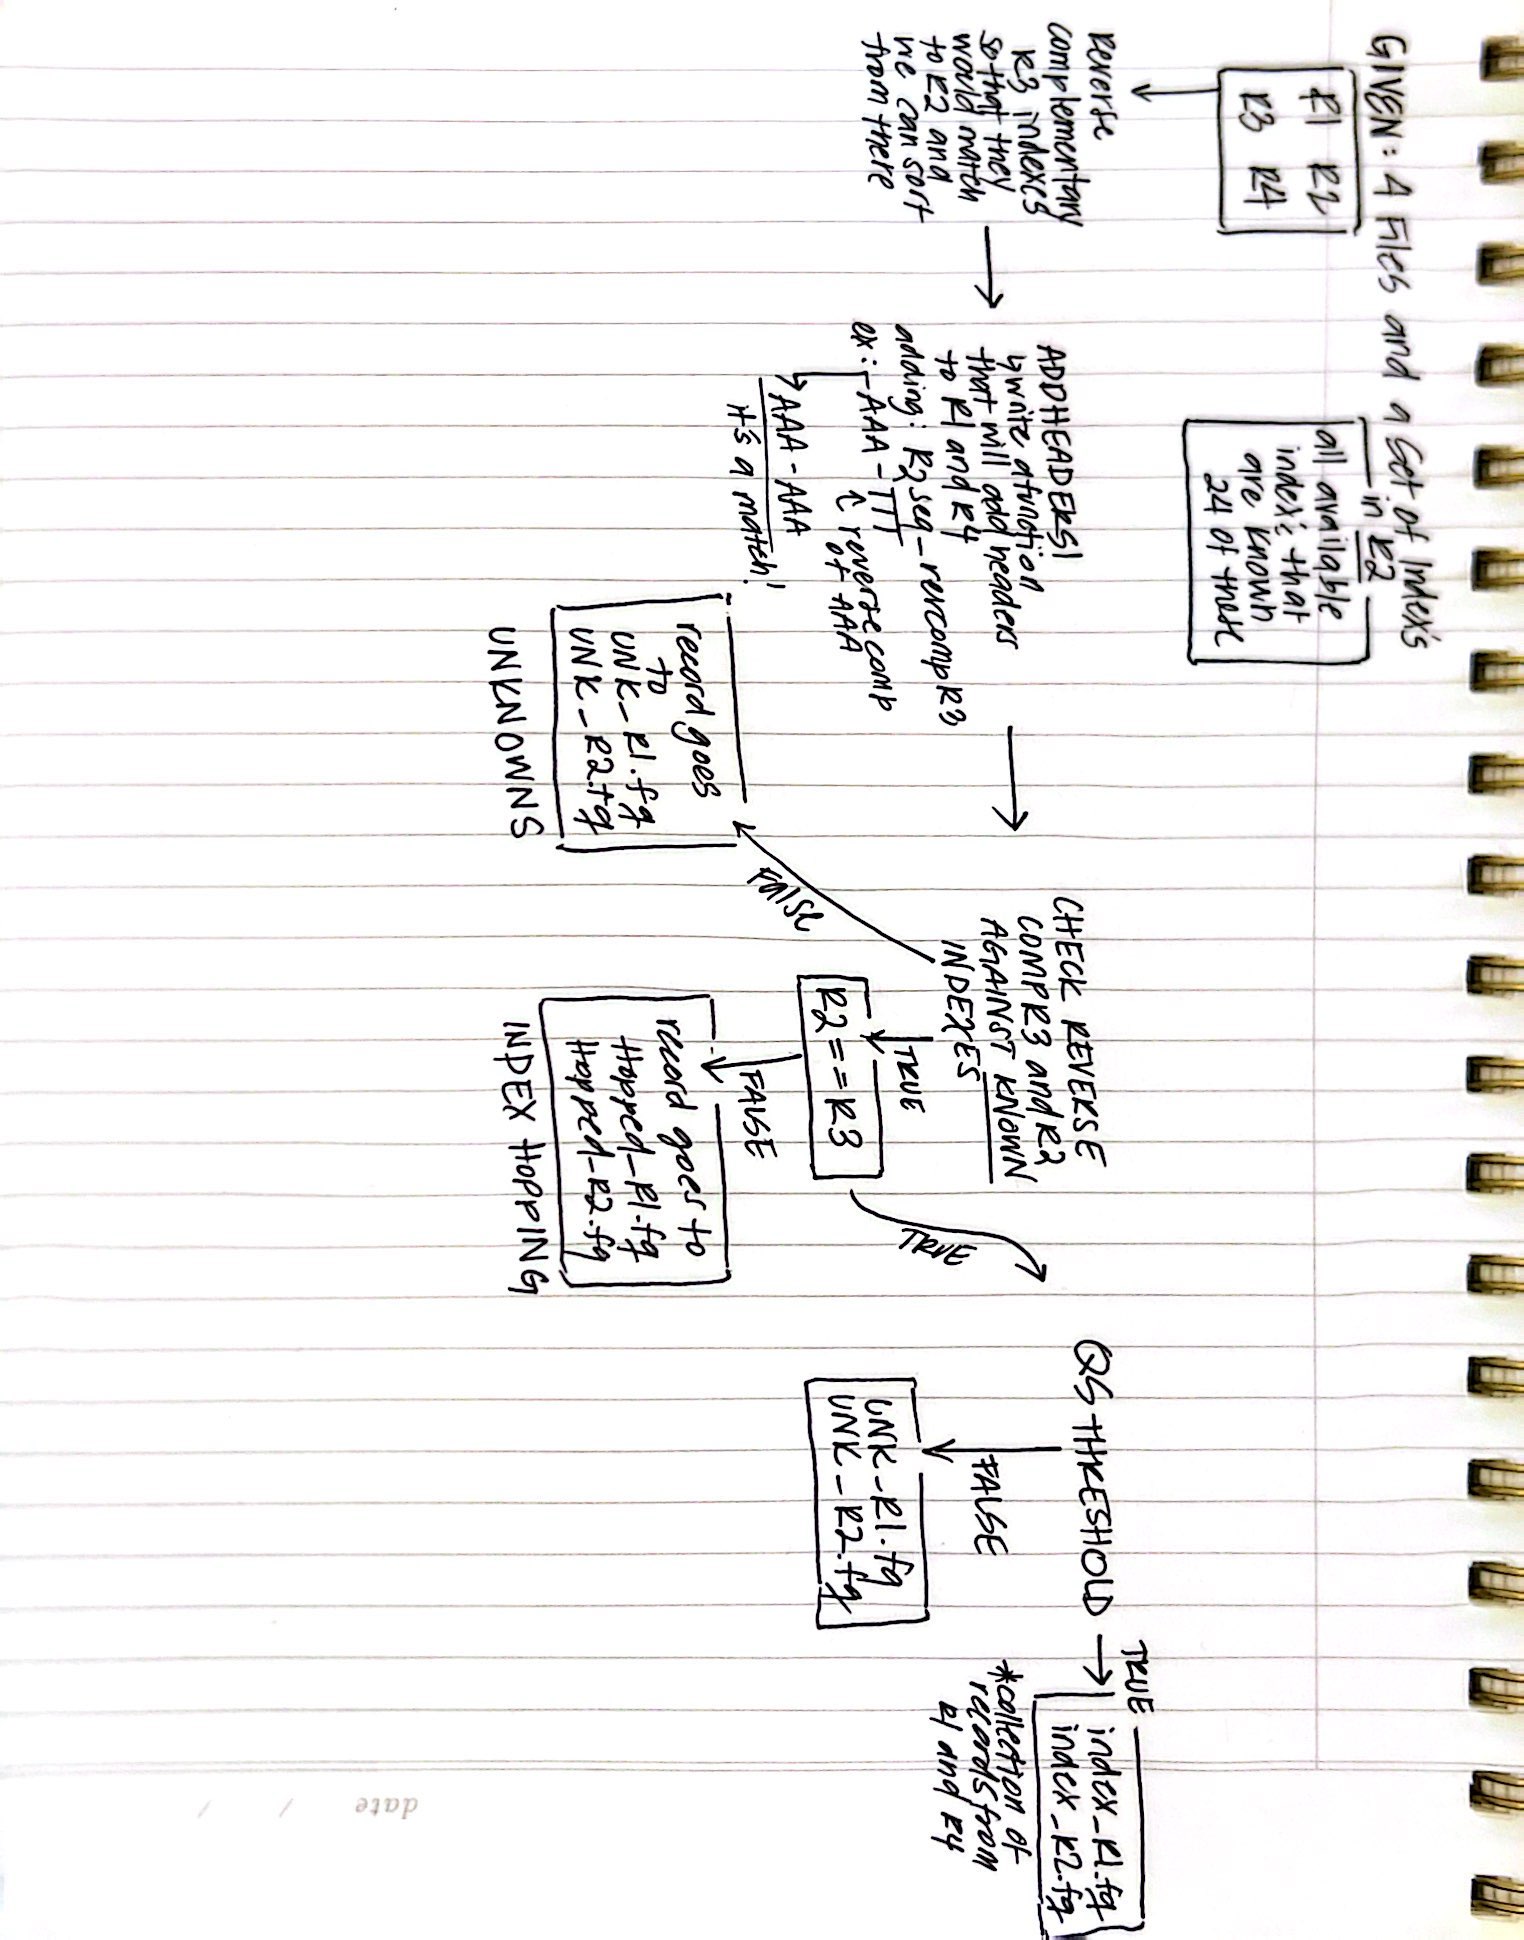 GIVEN: 4 Files and a set of Index's
R1 R2
R3 R4
in R2
all available
index's that
are known
24 of these
reverse
complementary
R3 indexes
so that they
would match
to R2 and
we can sort
from there
ADDHEADERS!
↳ write a function
that will add headers
to R1 and R4
adding: R2seq-revcompR3
ex: AAA-TTT
↑ reverse comp
of AAA
↳ AAA-AAA
it's a match!
CHECK REVERSE
COMPR3 and R2
AGAINST KNOWN
INDEXES
FALSE
record goes
to
UNK_R1.fq
UNK_R2.fq
UNKNOWNS
TRUE
R2==R3
FALSE
record goes to
Hopped_R1.fq
Hopped_R2.fq
INDEX HOPPING
TRUE
QS THRESHOLD
FALSE
UNK_R1.fq
UNK_R2.fq
TRUE
index_R1.fq
index_R2.fq
*collection of
records from
R1 and R4
date / /